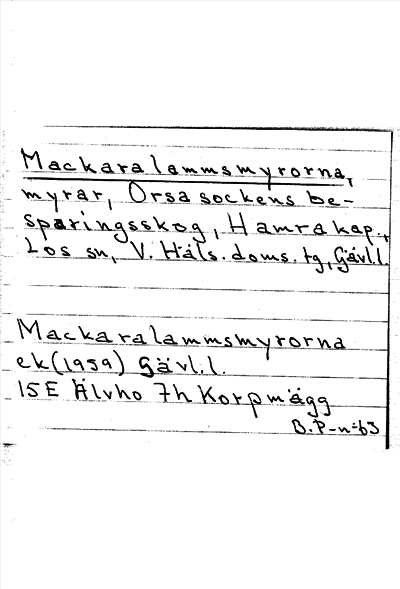 Mackaralammsmyrorna,
myrar, Orsa sockens be-
sparingsskog, Hamra kap.,
Los sn, V. Häls. doms. tg, Gävl.l.
Mackaralammsmyrorna
ek (1959) Gävl.l.
15E Älvho 7h Korpmägg
B.P-n-63